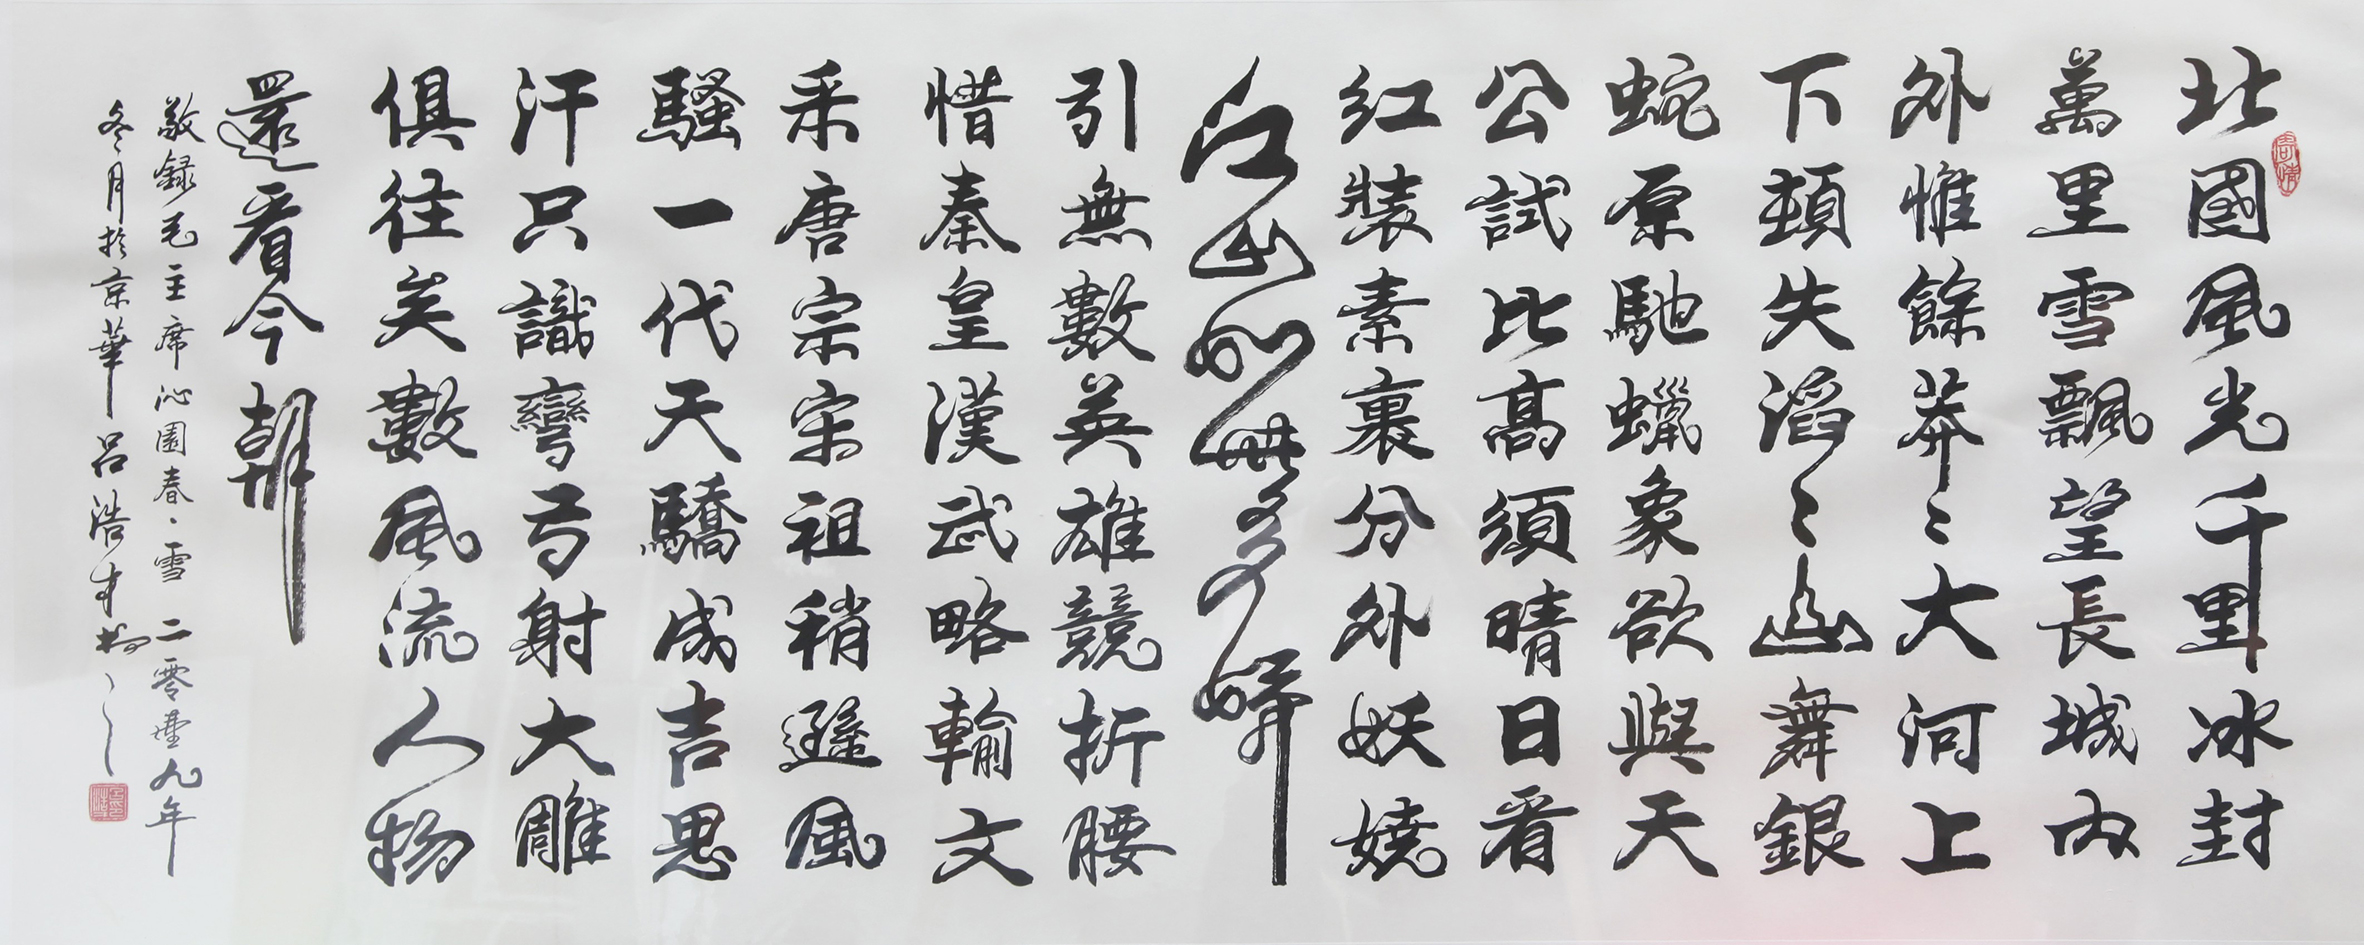 北國風光千里冰封
萬里雪飄望長城內
外惟餘莽〻大河上
下頓失滔〻山舞銀
蛇原馳蠟象欲與天
公試比高須晴日看
紅裝素裹分外妖嬈
江山如此多嬌
引無數英雄競折腰
惜秦皇漢武略輸文
采唐宗宋祖稍遜風
騷一代天驕成吉思
汗只識彎弓射大雕
俱往矣數風流人物
還看今朝
敬録毛主席沁園春·雪 二零壹九年
冬月於京華呂浩才